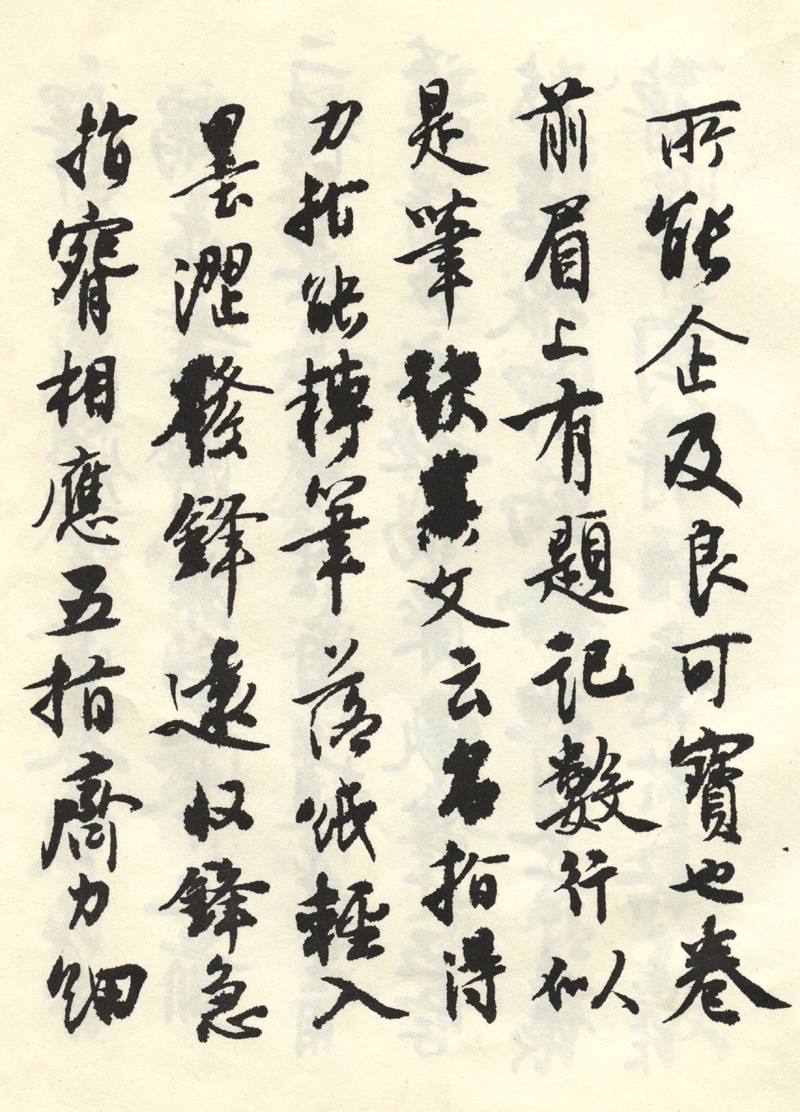 所能企及良可寶也卷
前眉上有題記數行似
是筆訣其文云名指得
力指能轉筆落紙輕入
墨澀發鋒遠收鋒急
指臂相應五指齊力細